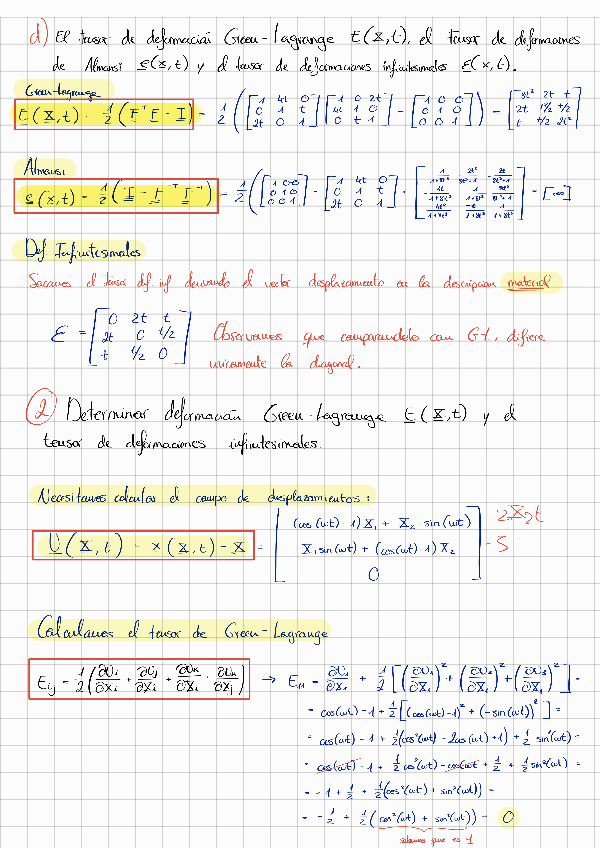 d) El tensor de deformación Green-Lagrange E(X,t), el tensor de deformaciones
de Almansi e(x,t) y el tensor de deformaciones infinitesimales E(x,t).
Green-Lagrange
E(X,t) = 1/2 (F^T F - I) = 1/2 ( [1 4t 0; 0 1 t; 2t 0 1] [1 0 2t; 4t 1 0; 0 t 1] - [1 0 0; 0 1 0; 0 0 1] ) =
Almansi
e(x,t) = 1/2 (I - F^-T F^-1) = 1/2 ( [1 0 0; 0 1 0; 0 0 1] - [1 4t 0; 0 1 t; 2t 0 1] ·
Def Infinitesimales
Sacamos el tensor def. inf derivando el vector desplazamiento en la descripcion material
ε = [0 2t t; 2t 0 1/2; t 1/2 0]
Observemos que comparandolo con G-L, difiere
unicamente la diagonal.
2) Determinar deformación Green-Lagrange E(X,t) y el
tensor de deformaciones infinitesimales.
Necesitamos calcular el campo de desplazamientos:
U(X,t) = x(X,t) - X = [(cos(wt)-1)X₁ + X₂ sin(wt); X₁ sin(wt) + (cos(wt)-1)X₂; 0]
Calculamos el tensor de Green-Lagrange
→ E₁₁ = ∂U₁/∂X₁ + 1/2 [(∂U₁/∂X₁)² + (∂U₂/∂X₁)² + (∂U₃/∂X₁)²] =
= cos(wt) - 1 + 1/2 [(cos(wt)-1)² + (-sin(wt))²] =
= cos(wt) - 1 + 1/2 (cos²(wt) - 2cos(wt) + 1) + 1/2 sin²(wt) =
= cos(wt) - 1 + 1/2 cos²(wt) - cos(wt) + 1/2 + 1/2 sin²(wt) =
= -1 + 1/2 + 1/2 (cos²(wt) + sin²(wt)) =
= -1/2 + 1/2 (cos²(wt) + sin²(wt)) = 0
sabemos que es 1